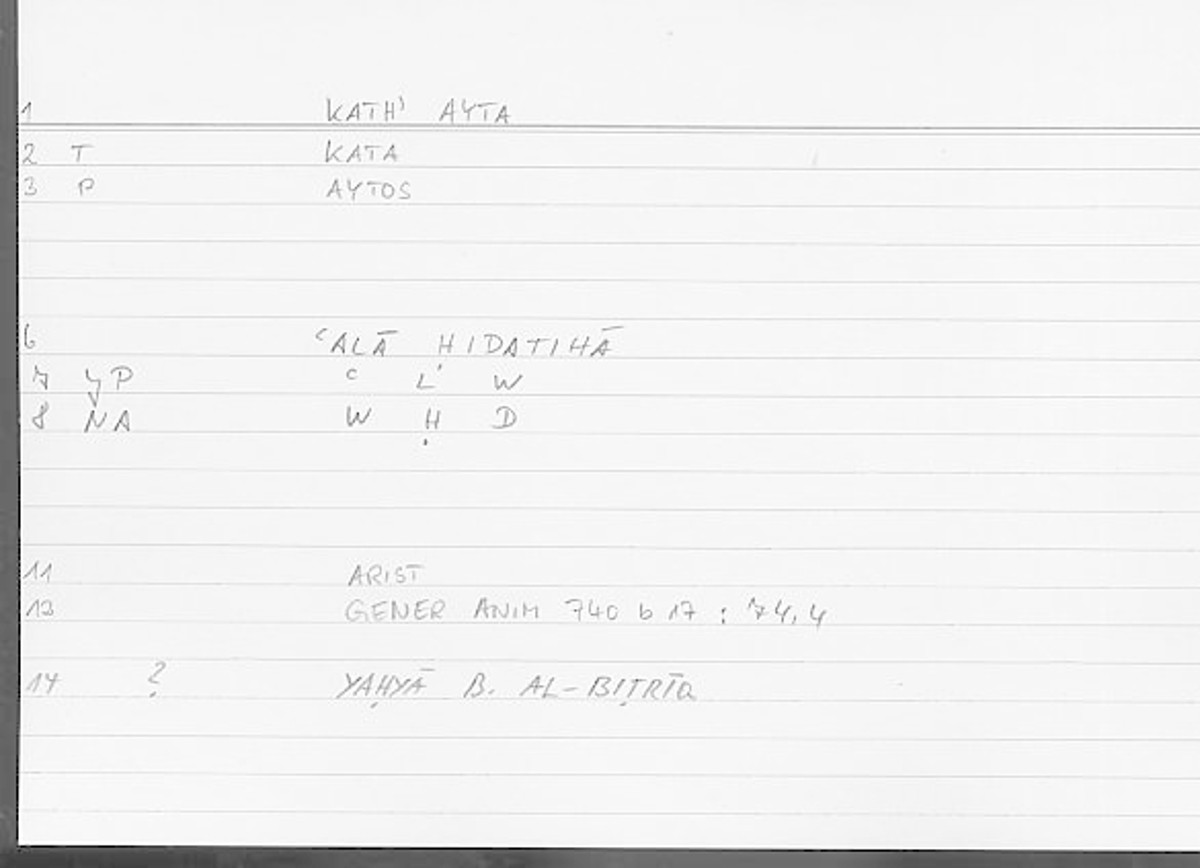 1 KATH' AYTA
2 T KATA
3 P AYTOS
6 ʿALĀ HIDATIHĀ
7 P ʿ L W
8 NA W Ḥ D
11 ARIST
13 GENER ANIM 740 b 17 : 74,4
14 ? YAḤYĀ B. AL-BIṬRĪQ